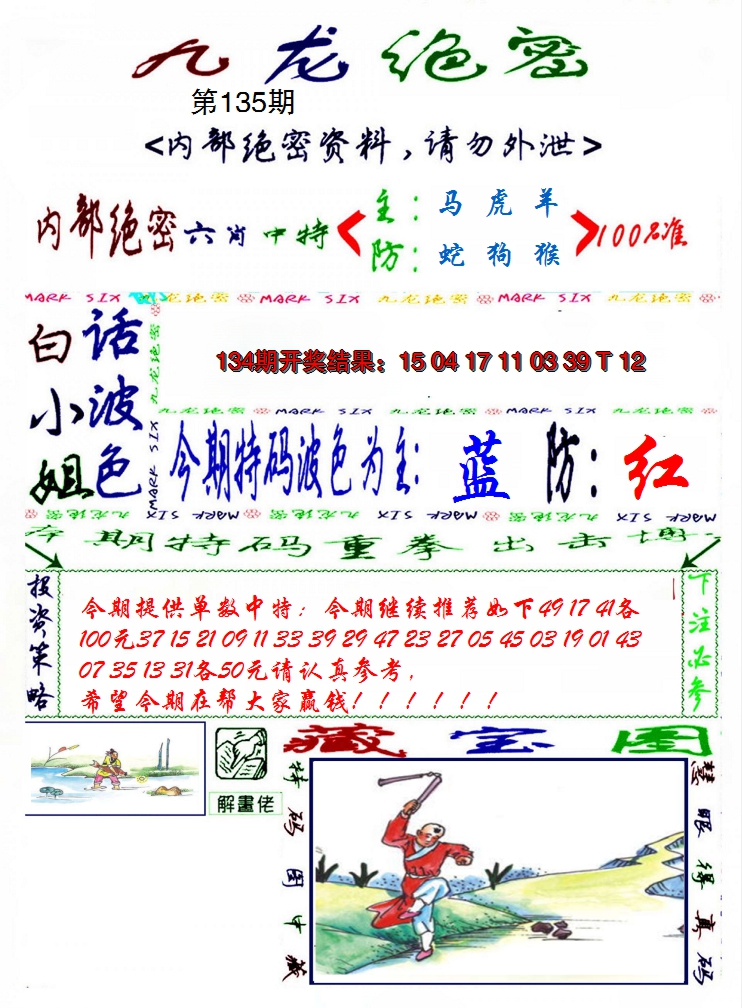 九龙绝密
第135期
<内部绝密资料，请勿外泄>
内部绝密六肖中特
主：马 虎 羊
防：蛇 狗 猴
100%准
MARK SIX 九龙绝密 MARK SIX 九龙绝密 MARK SIX 九龙绝密
九龙绝密
MARK SIX
白小姐
话波色
134期开奖结果：15 04 17 11 03 39 T 12
九龙绝密 MARK SIX 九龙绝密 MARK SIX
今期特码波色为主：蓝 防：红
九龙绝密 MARK SIX 九龙绝密 MARK SIX 九龙绝密 MARK SIX
本期特码重拳出击博
投资策略
今期提供单数中特；今期继续推荐如下49 17 41各
100元37 15 21 09 11 33 39 29 47 23 27 05 45 03 19 01 43
07 35 13 31各50元请认真参考,
希望今期在帮大家赢钱！！！！！！
下注必参
解畫佬
藏宝图
特码图中藏
慧眼得真码